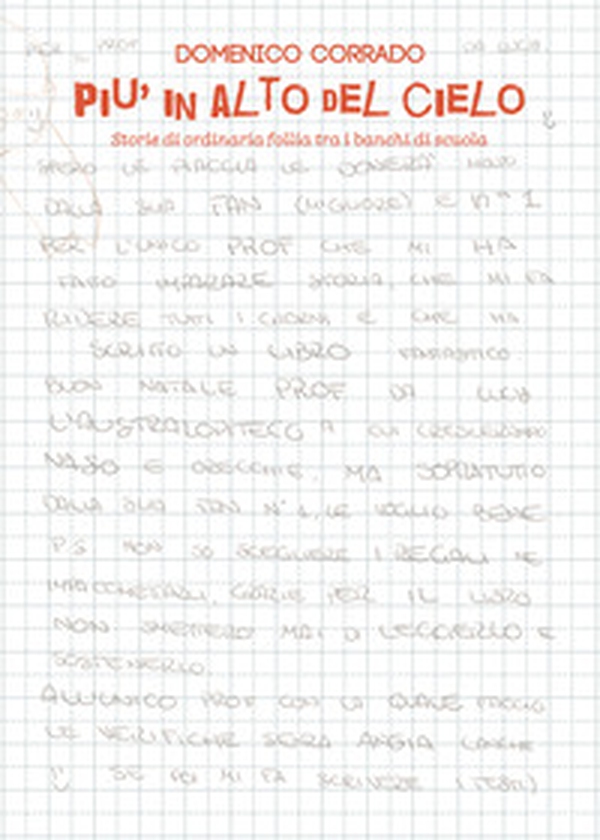 PER PROF DA LUCIA.
DOMENICO CORRADO
PIU' IN ALTO DEL CIELO
Storie di ordinaria follia tra i banchi di scuola
SPERO LE PIACCIA LE DONERÀ
DALLA SUA FAN (MIGLIORE) E N° 1
PER L'UNICO PROF CHE MI HA
FATTO IMPARARE STORIA, CHE MI FA
RIDERE TUTTI I GIORNI E CHE HA
SCRITTO UN LIBRO FANTASTICO
BUON NATALE PROF DA
L'AUSTRALOPITECO A CUI
NASO E ORECCHIE, MA SOPRATUTTO
DALLA SUA FAN N° 1, LE VOGLIO BENE
P.S NON SO SCEGLIERE I REGALI NE
GRAZIE PER IL LIBRO
NON SMETTERÒ MAI DI LEGGERLO E
SOSTENERLO.
ALL'UNICO PROF CON LA QUALE FACCIO
LE VERIFICHE SENZA ANSIA (ANCHE
SE POI MI FA SCRIVERE I TESTI)